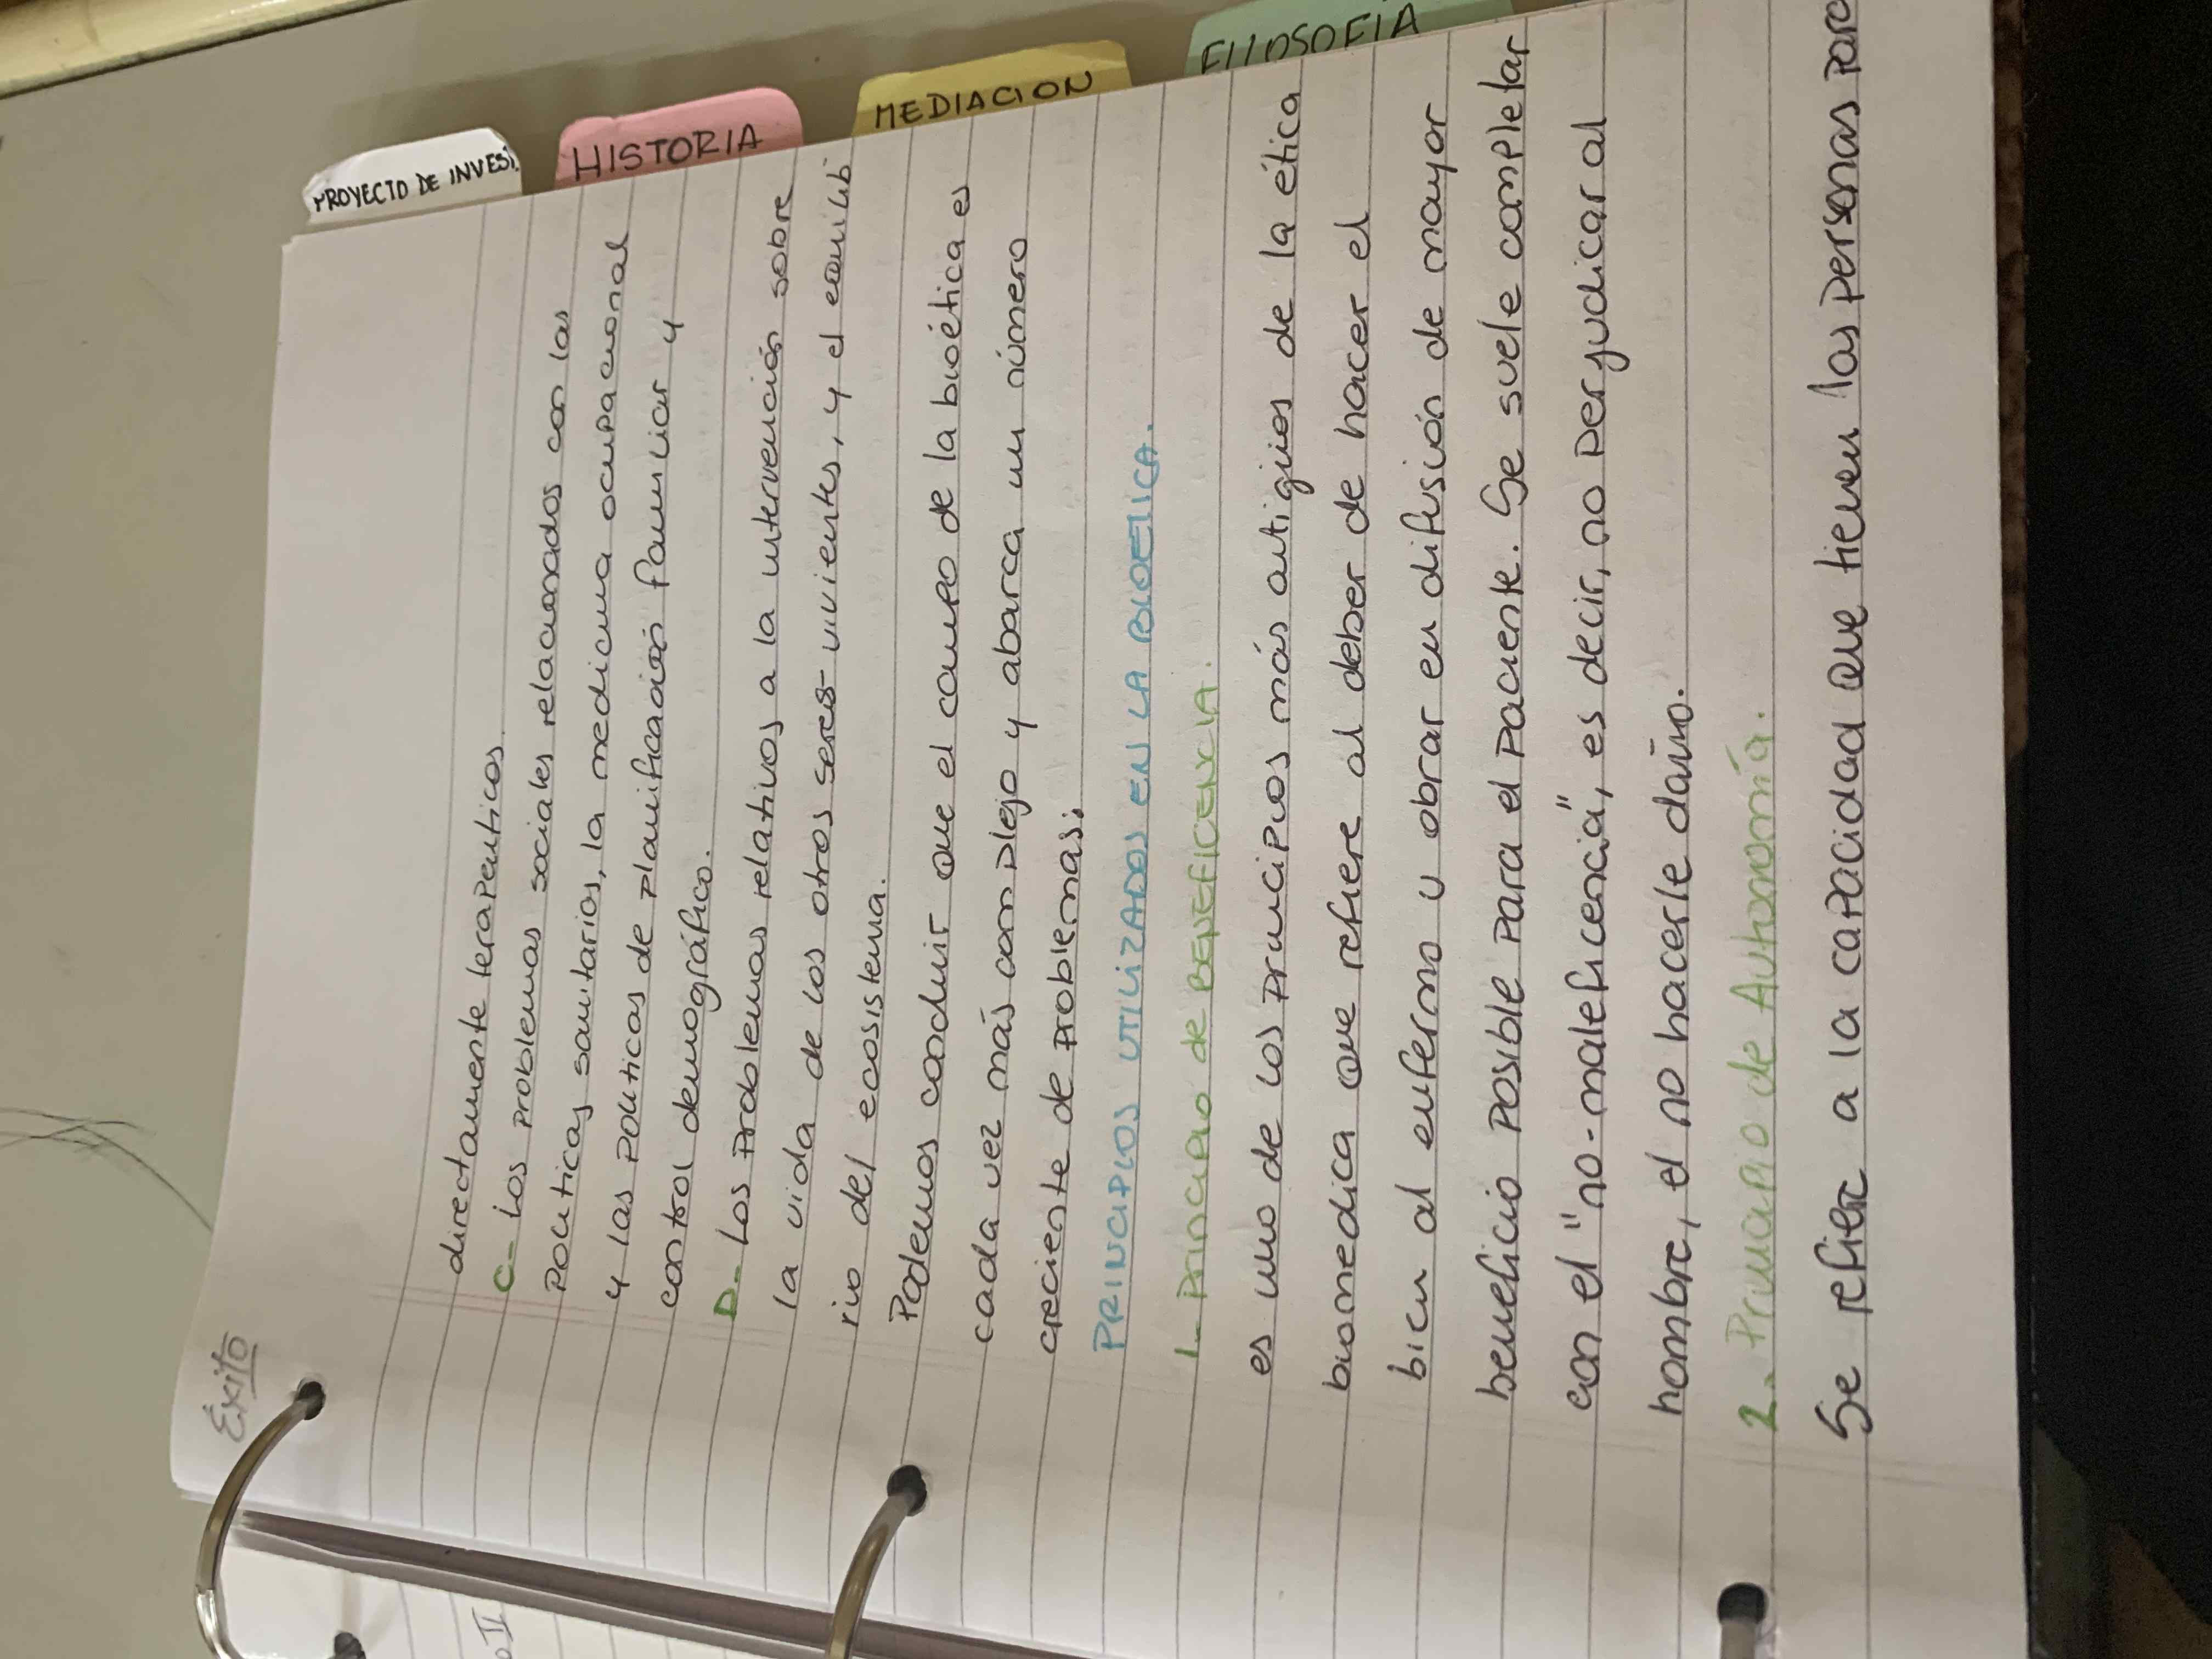 Éxito
PROYECTO DE INVES
HISTORIA
MEDIACION
FILOSOFÍA
directamente terapeuticos.
C- Los problemas sociales relacionados con las
politicas sanitarios, la medicina ocupacional
y las politicas de planificación familiar y
control demográfico.
D- Los problemas relativos a la intervención sobre
la vida de los otros seres vivientes, y el equilib
rio del ecosistema.
Podemos concluir que el campo de la bioética es
cada vez más complejo y abarca un número
creciente de problemas.
PRINCIPIOS UTILIZADOS EN LA BIOETICA.
1- Principio de BENEFICENCIA.
es uno de los principios más antiguos de la ética
biomedica que refiere al deber de hacer el
bien al enfermo u obrar en difusión de mayor
beneficio posible para el paciente. Se suele completar
con el "no-maleficencia", es decir, no perjudicar al
hombre, el no hacerle daño.
2. Principio de Autonomía.
Se refiere a la capacidad que tienen las personas para
II